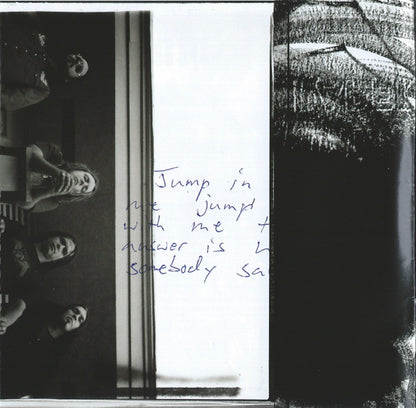 Jump in
me jump
with me t
answer is h
somebody sa